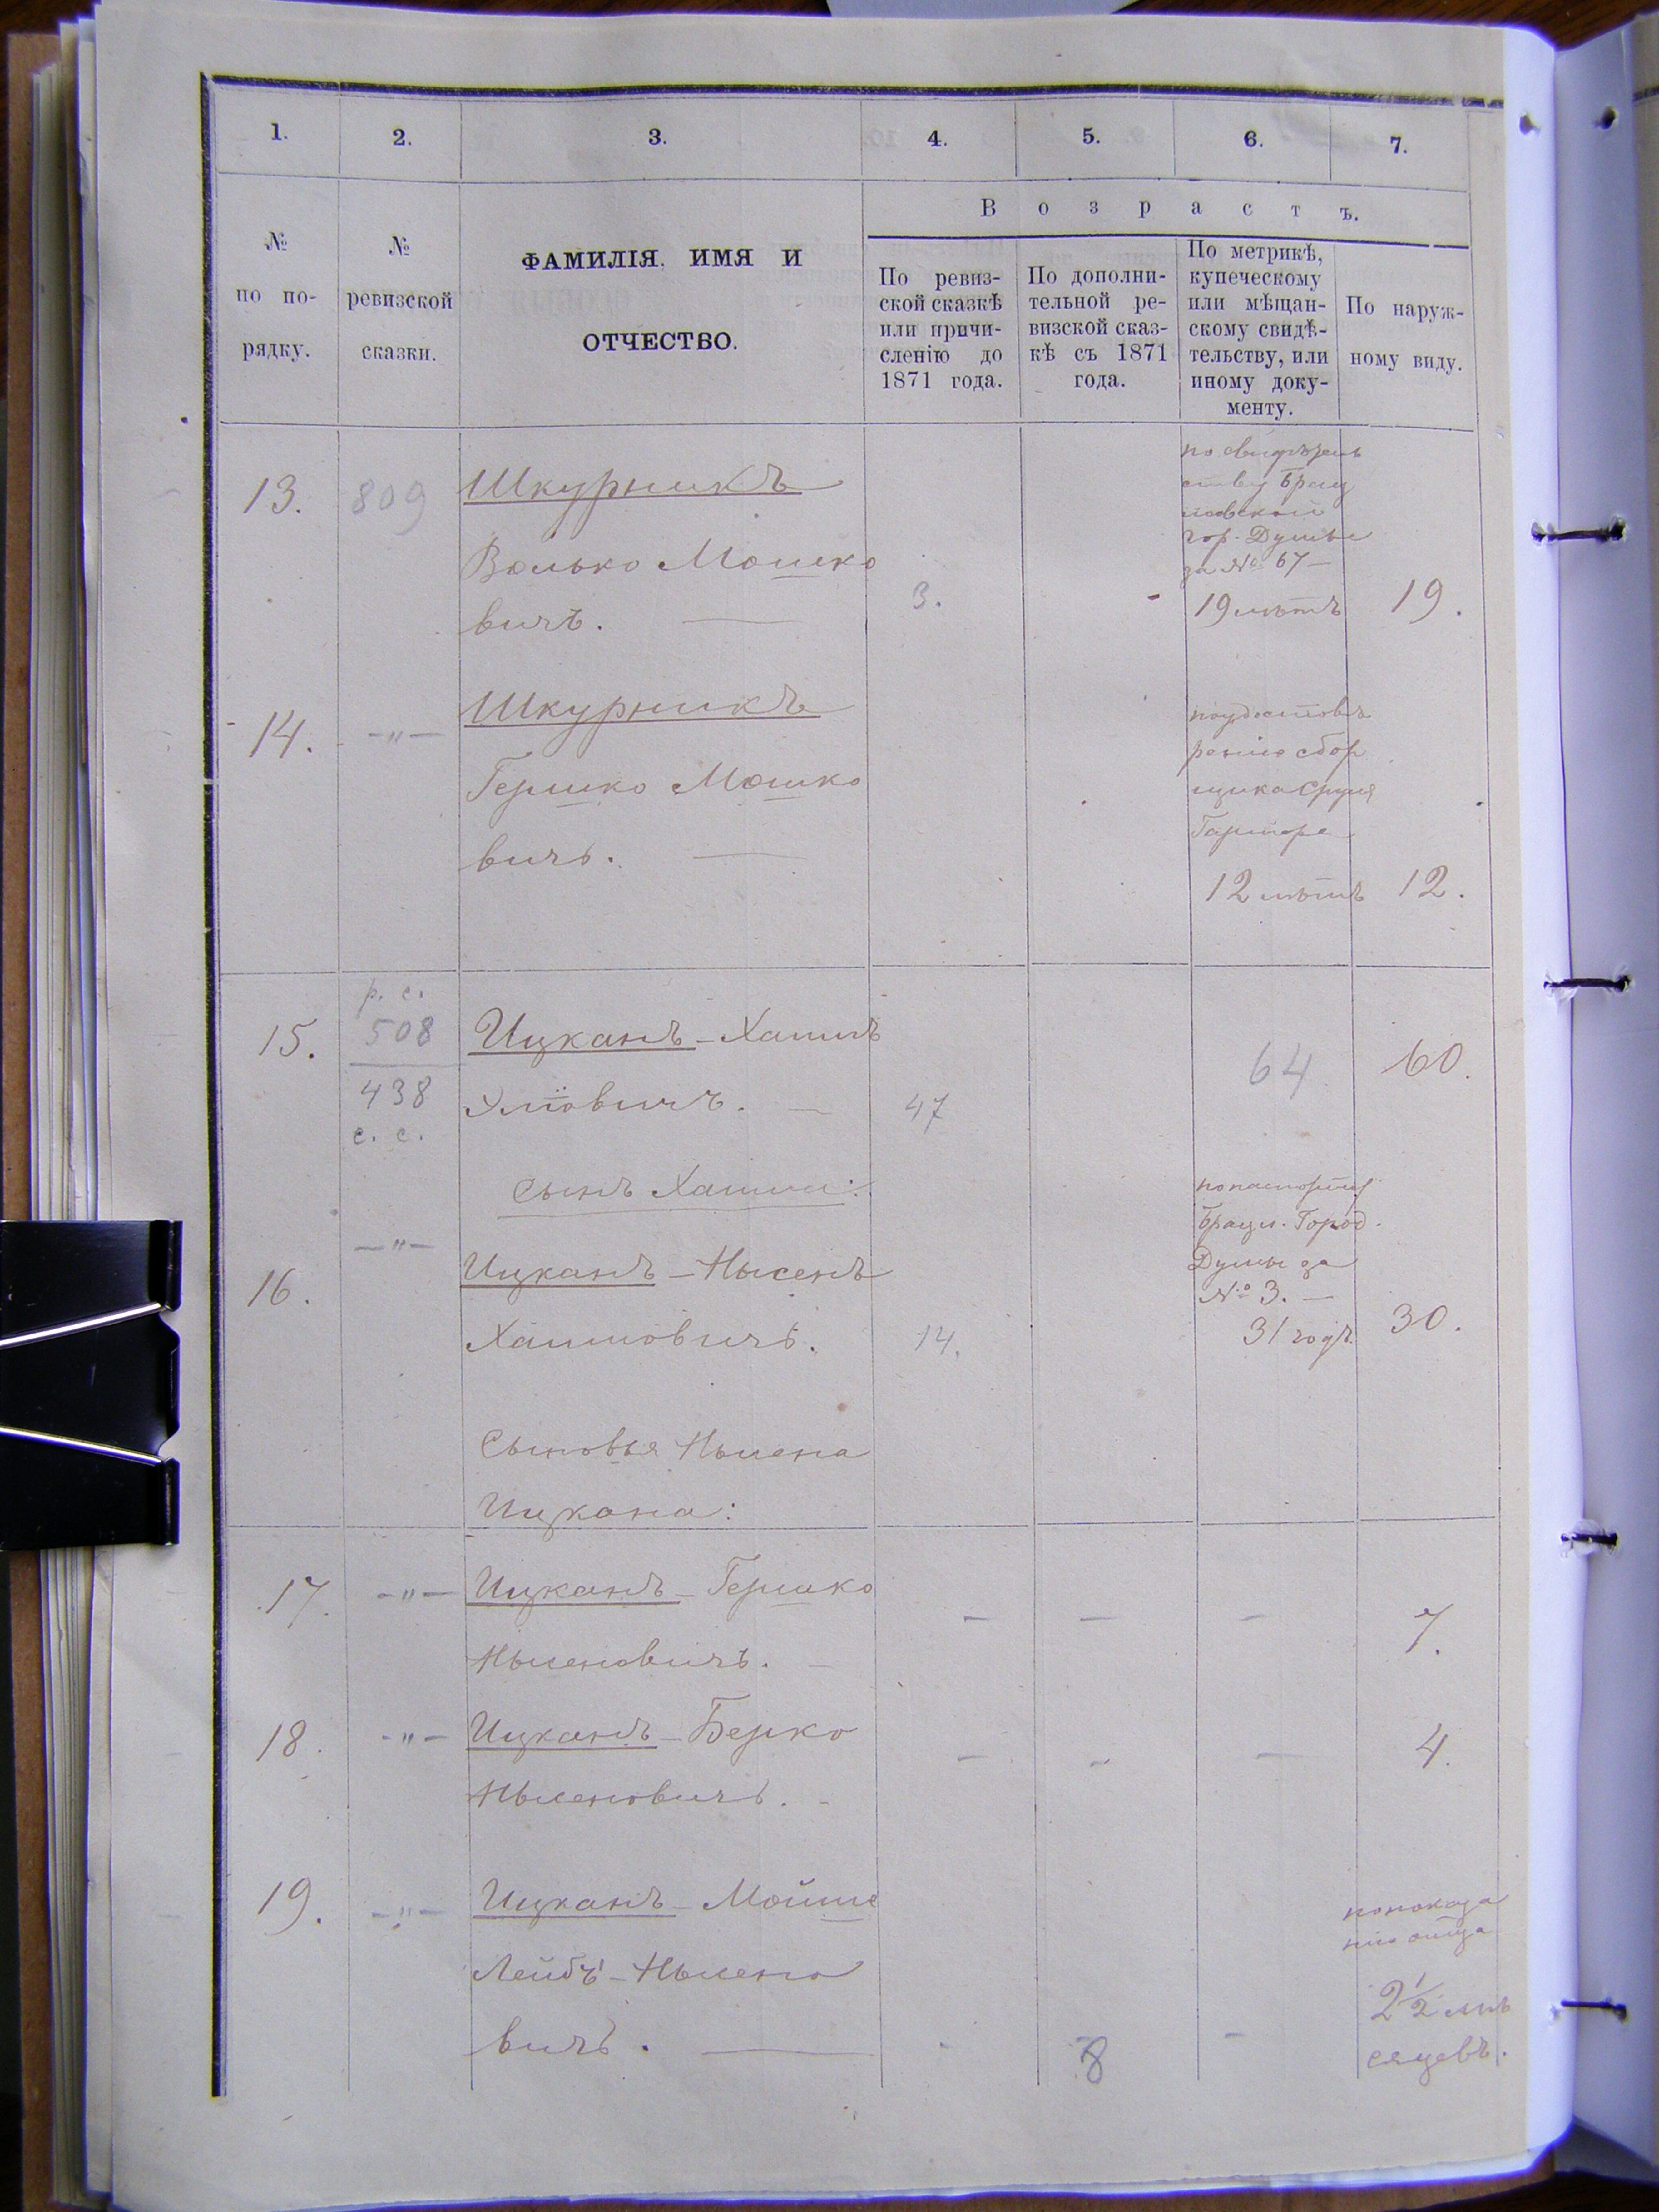 1.
2.
3.
4.
5.
6.
7.
№
по по-
рядку.
№
ревизской
сказки.
ФАМИЛІЯ. ИМЯ И
ОТЧЕСТВО.
Возрастъ.
По ревиз-
ской сказкѣ
или причи-
сленію до
1871 года.
По дополни-
тельной ре-
визской сказ-
кѣ съ 1871
года.
По метрикѣ,
купеческому
или мѣщан-
скому свидѣ-
тельству, или
иному доку-
менту.
По наруж-
ному виду.
13.
809
Шкурникъ
Волько Мошко
вичъ.
3.
по свидѣтель
ству Брац
лавской
гор. Думы
за № 67 —
19 лѣтъ
19.
14.
-"-
Шкурникъ
Гершко Мошко
вичъ.
по удостовѣ
ренію сбор
щика Сруля
12 лѣтъ
12.
15.
р. с.
508
438
с. с.
Ицканъ - Хаимъ
47
64
60.
сынъ Хаима:
16.
-"-
Ицканъ - Нысенъ
Хаимовичъ.
14.
по паспорту
Брацл. Город.
Думы за
№ 3. —
31 годъ.
30.
Сыновья Нысена
Ицкана:
17.
-"-
Ицканъ - Гершко
Нысеновичъ. -
-
-
-
7.
18.
-"-
Ицканъ - Берко
Нысеновичъ. -
-
-
-
4.
19.
-"-
Ицканъ - Мойше
Лейбъ - Нысено
вичъ.
-
8
-
по показа
нію отца
2½ мѣ
сяцевъ.